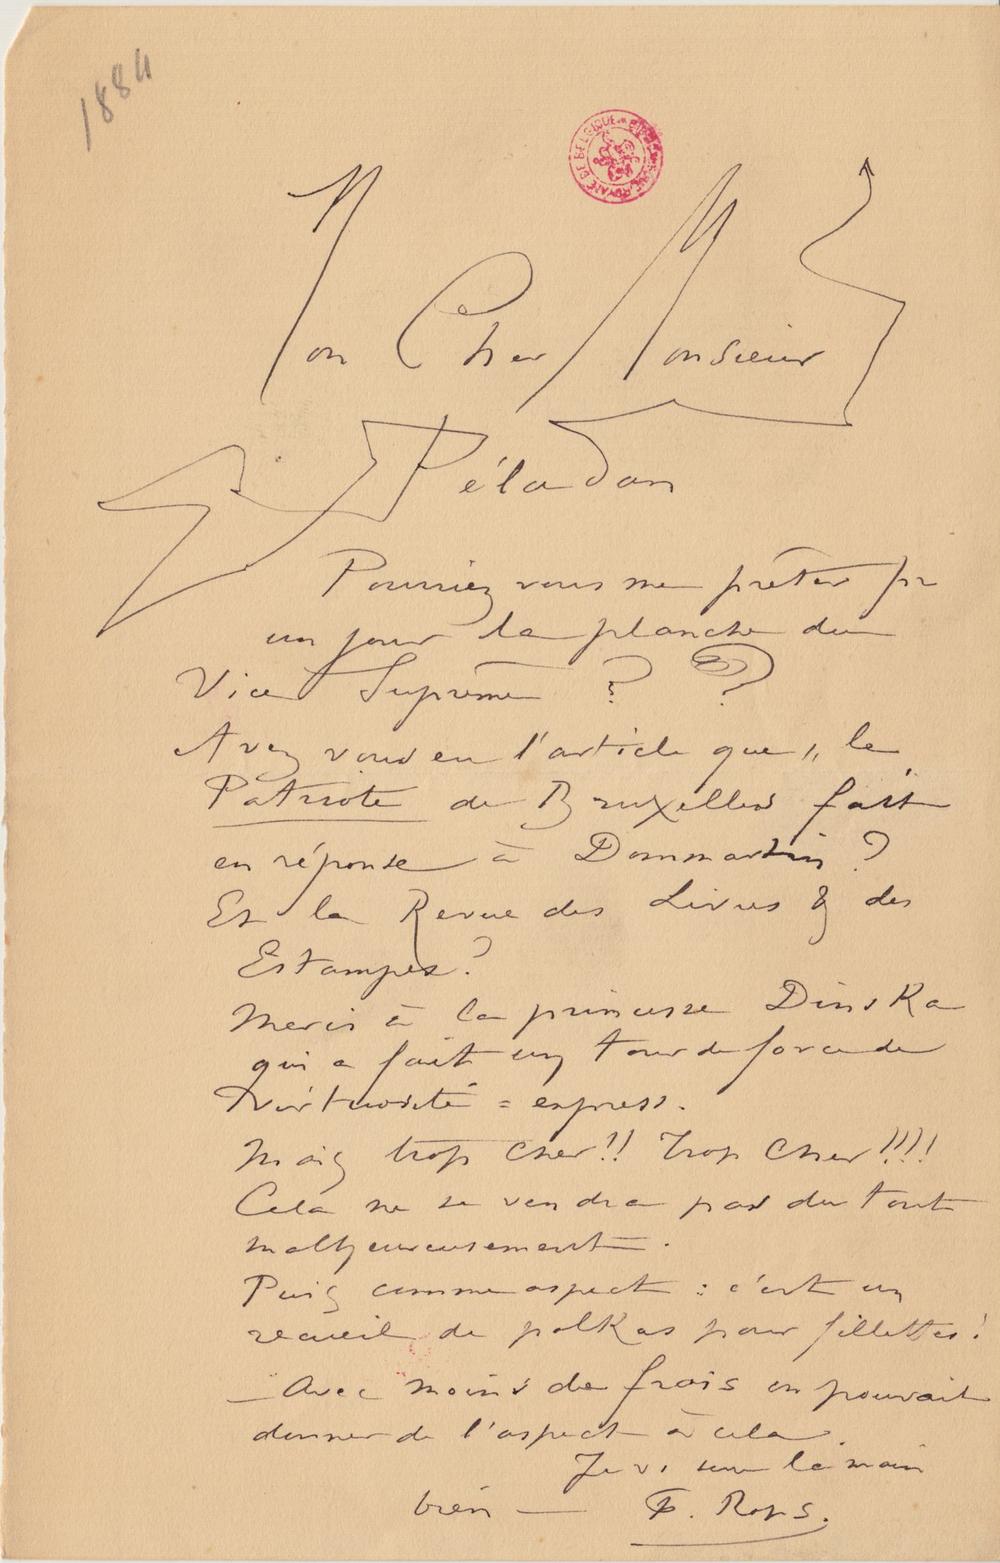 1884
BIBLIOTHÈQUE ROYALE DE BELGIQUE
Mon Cher Monsieur
Péladan
Pourriez vous me prêter pr
un jour la planche du
Vice Suprême ? ?
Avez vous eu l'article que „ le
Patriote de Bruxelles fait
en réponse à Dommartin ?
Et la Revue des Livres & des
Estampes ?
Merci à la princesse Dinska
qui a fait un tour de force de
virtuosité = express.
Mais trop cher !! Trop cher !!!!
Cela ne se vendra pas du tout
malheureusement .
Puis comme aspect : c'est un
recueil de polkas pour fillettes !
_ Avec moins de frais on pouvait
donner de l'aspect à cela .
Je v. serre la main
bien — F. Rops.